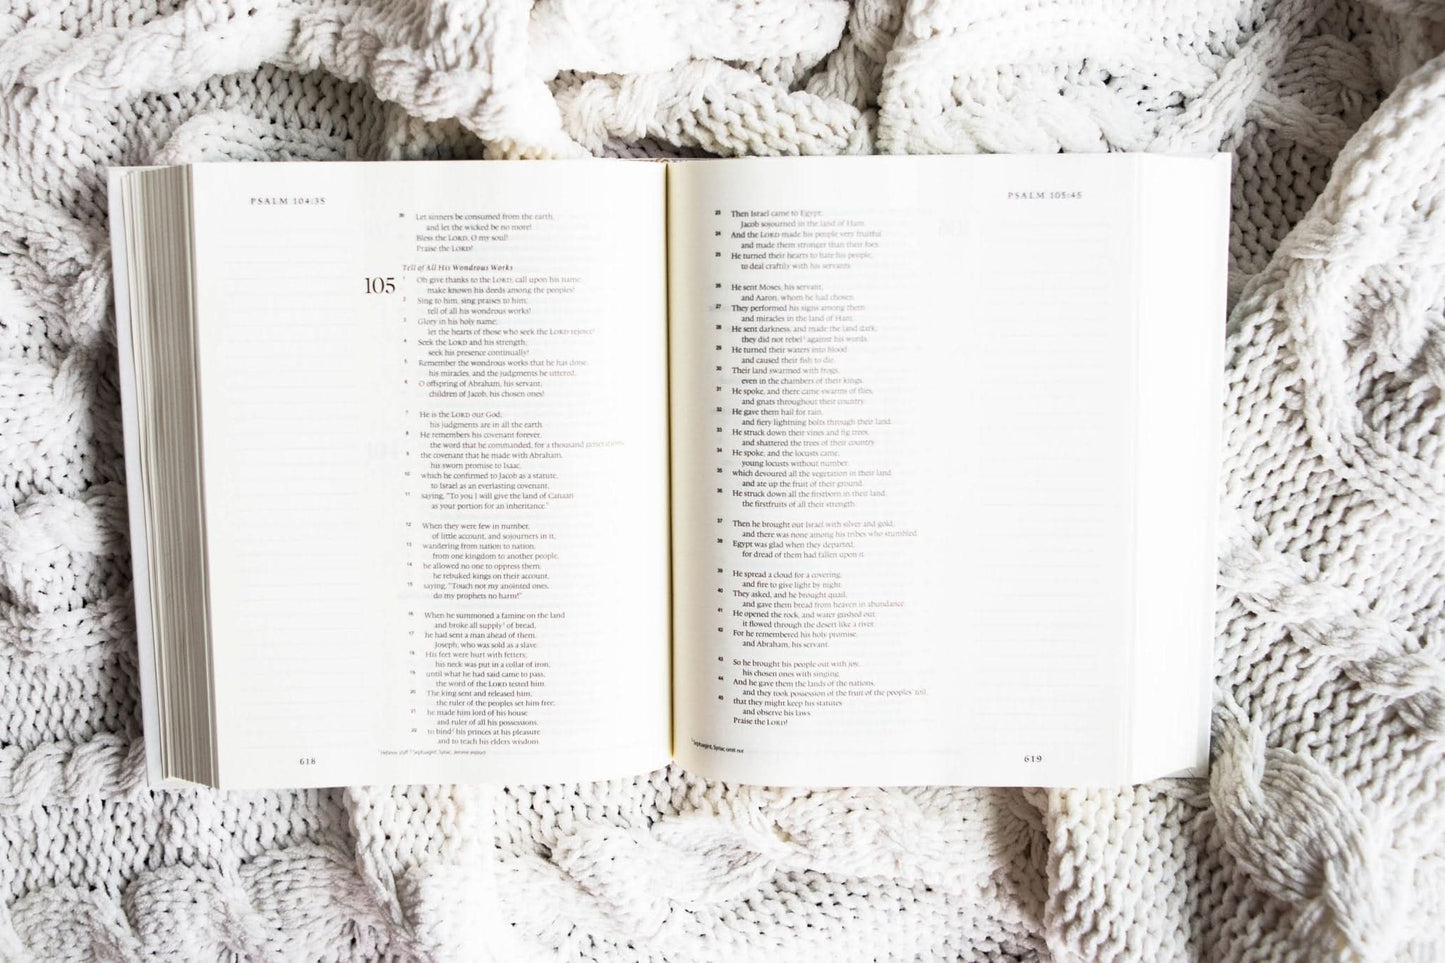 PSALM 104:35
35 Let sinners be consumed from the earth,
and let the wicked be no more!
Bless the LORD, O my soul!
Praise the LORD!
Tell of All His Wondrous Works
105
1 Oh give thanks to the LORD; call upon his name;
make known his deeds among the peoples!
2 Sing to him, sing praises to him;
tell of all his wondrous works!
3 Glory in his holy name;
let the hearts of those who seek the LORD rejoice!
4 Seek the LORD and his strength;
seek his presence continually!
5 Remember the wondrous works that he has done,
his miracles, and the judgments he uttered,
6 O offspring of Abraham, his servant,
children of Jacob, his chosen ones!
7 He is the LORD our God;
his judgments are in all the earth.
8 He remembers his covenant forever,
the word that he commanded, for a thousand generations,
9 the covenant that he made with Abraham,
his sworn promise to Isaac,
10 which he confirmed to Jacob as a statute,
to Israel as an everlasting covenant,
11 saying, "To you I will give the land of Canaan
as your portion for an inheritance."
12 When they were few in number,
of little account, and sojourners in it,
13 wandering from nation to nation,
from one kingdom to another people,
14 he allowed no one to oppress them;
he rebuked kings on their account,
15 saying, "Touch not my anointed ones,
do my prophets no harm!"
16 When he summoned a famine on the land
and broke all supply¹ of bread,
17 he had sent a man ahead of them,
Joseph, who was sold as a slave.
18 His feet were hurt with fetters;
his neck was put in a collar of iron;
19 until what he had said came to pass,
the word of the LORD tested him.
20 The king sent and released him;
the ruler of the peoples set him free;
21 he made him lord of his house
and ruler of all his possessions,
22 to bind² his princes at his pleasure
and to teach his elders wisdom.
¹ Hebrew staff ² Septuagint, Syriac, Jerome instruct
618
PSALM 105:45
23 Then Israel came to Egypt;
Jacob sojourned in the land of Ham.
24 And the LORD made his people very fruitful
and made them stronger than their foes.
25 He turned their hearts to hate his people,
to deal craftily with his servants.
26 He sent Moses, his servant,
and Aaron, whom he had chosen.
27 They performed his signs among them
and miracles in the land of Ham.
28 He sent darkness, and made the land dark;
they did not rebel¹ against his words.
29 He turned their waters into blood
and caused their fish to die.
30 Their land swarmed with frogs,
even in the chambers of their kings.
31 He spoke, and there came swarms of flies,
and gnats throughout their country.
32 He gave them hail for rain,
and fiery lightning bolts through their land.
33 He struck down their vines and fig trees,
and shattered the trees of their country.
34 He spoke, and the locusts came,
young locusts without number,
35 which devoured all the vegetation in their land
and ate up the fruit of their ground.
36 He struck down all the firstborn in their land,
the firstfruits of all their strength.
37 Then he brought out Israel with silver and gold,
and there was none among his tribes who stumbled.
38 Egypt was glad when they departed,
for dread of them had fallen upon it.
39 He spread a cloud for a covering,
and fire to give light by night.
40 They asked, and he brought quail,
and gave them bread from heaven in abundance.
41 He opened the rock, and water gushed out;
it flowed through the desert like a river.
42 For he remembered his holy promise,
and Abraham, his servant.
43 So he brought his people out with joy,
his chosen ones with singing.
44 And he gave them the lands of the nations,
and they took possession of the fruit of the peoples' toil,
45 that they might keep his statutes
and observe his laws.
Praise the LORD!
¹ Septuagint, Syriac omit not
619